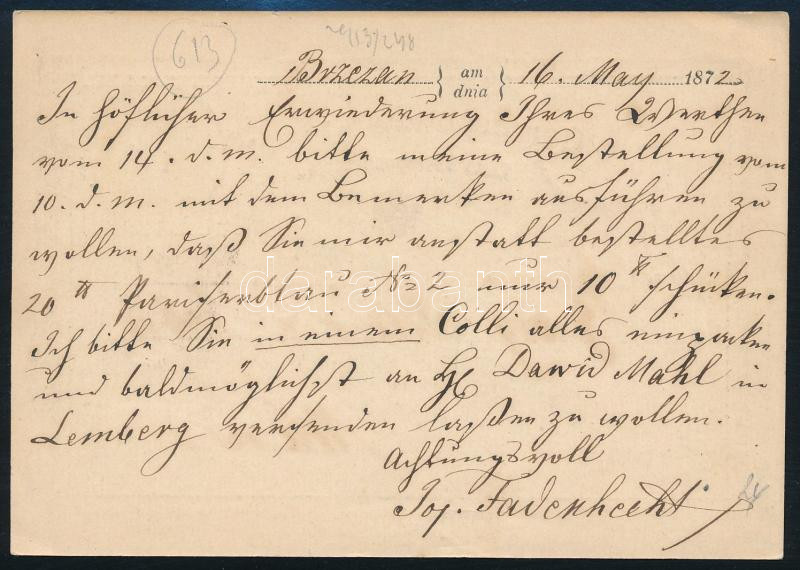 613
Brzezan am 16. May 1872
dnia
In höflicher Erwiederung Ihres Werthen
vom 14. d. m. bitte meine Bestellung vom
10. d. m. mit dem Bemerken ausführen zu
wollen, daß Sie mir anstatt bestelltes
20 ℔ Pariserblau No 2 nur 10 ℔ schicken.
Ich bitte Sie in einem Colli alles einpacken
und baldmöglichst an H Dawid Mahl in
Lemberg versenden laßen zu wollen.
Achtungsvoll
Jos. Fadenhecht
darabanth